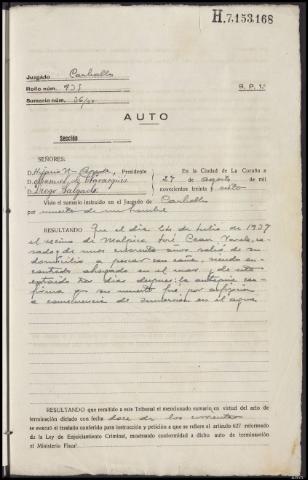 H.7.153.168
Juzgado Carballo
Rollo núm. 935
Sumario núm. 36/
S. P. 1.ª
AUTO
Sección
SEÑORES:
D. Hipario Presidente
D. Ramon de
D. Diego Salgado
En la Ciudad de La Coruña a
27 de agosto de mil
novecientos treinta y siete
Visto el sumario instruido en el Juzgado de Carballo
por muerte de un hombre
RESULTANDO Que el dia 14 de Julio de 1937
el vecino de Malpica José Cesar Varela, ca-
sado, de unos cuarenta años salió de su
domicilio a pescar con caña, siendo en-
contrado ahogado en el mar, de este
extraido tres dias despues; la autopsia con-
firma que su muerte fué por asfixia
a consecuencia de sumersion en el agua.
RESULTANDO que remitido a este Tribunal el mencionado sumario en virtud del auto de
terminación dictado con fecha doce de los corrientes
se evacuó el traslado conferido para instrucción y petición a que se refiere el artículo 627 reformado
de la Ley de Enjuiciamiento Criminal, mostrando conformidad a dicho auto de terminación
el Ministerio Fiscal